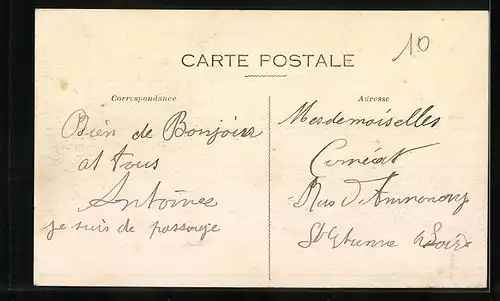 10
CARTE POSTALE
Correspondance
Bien de Bonjour
at tous
Antoinee
je suis de passage
Adresse
Mesdemoiselles
Rue d'Annonay
St Etienne Loire